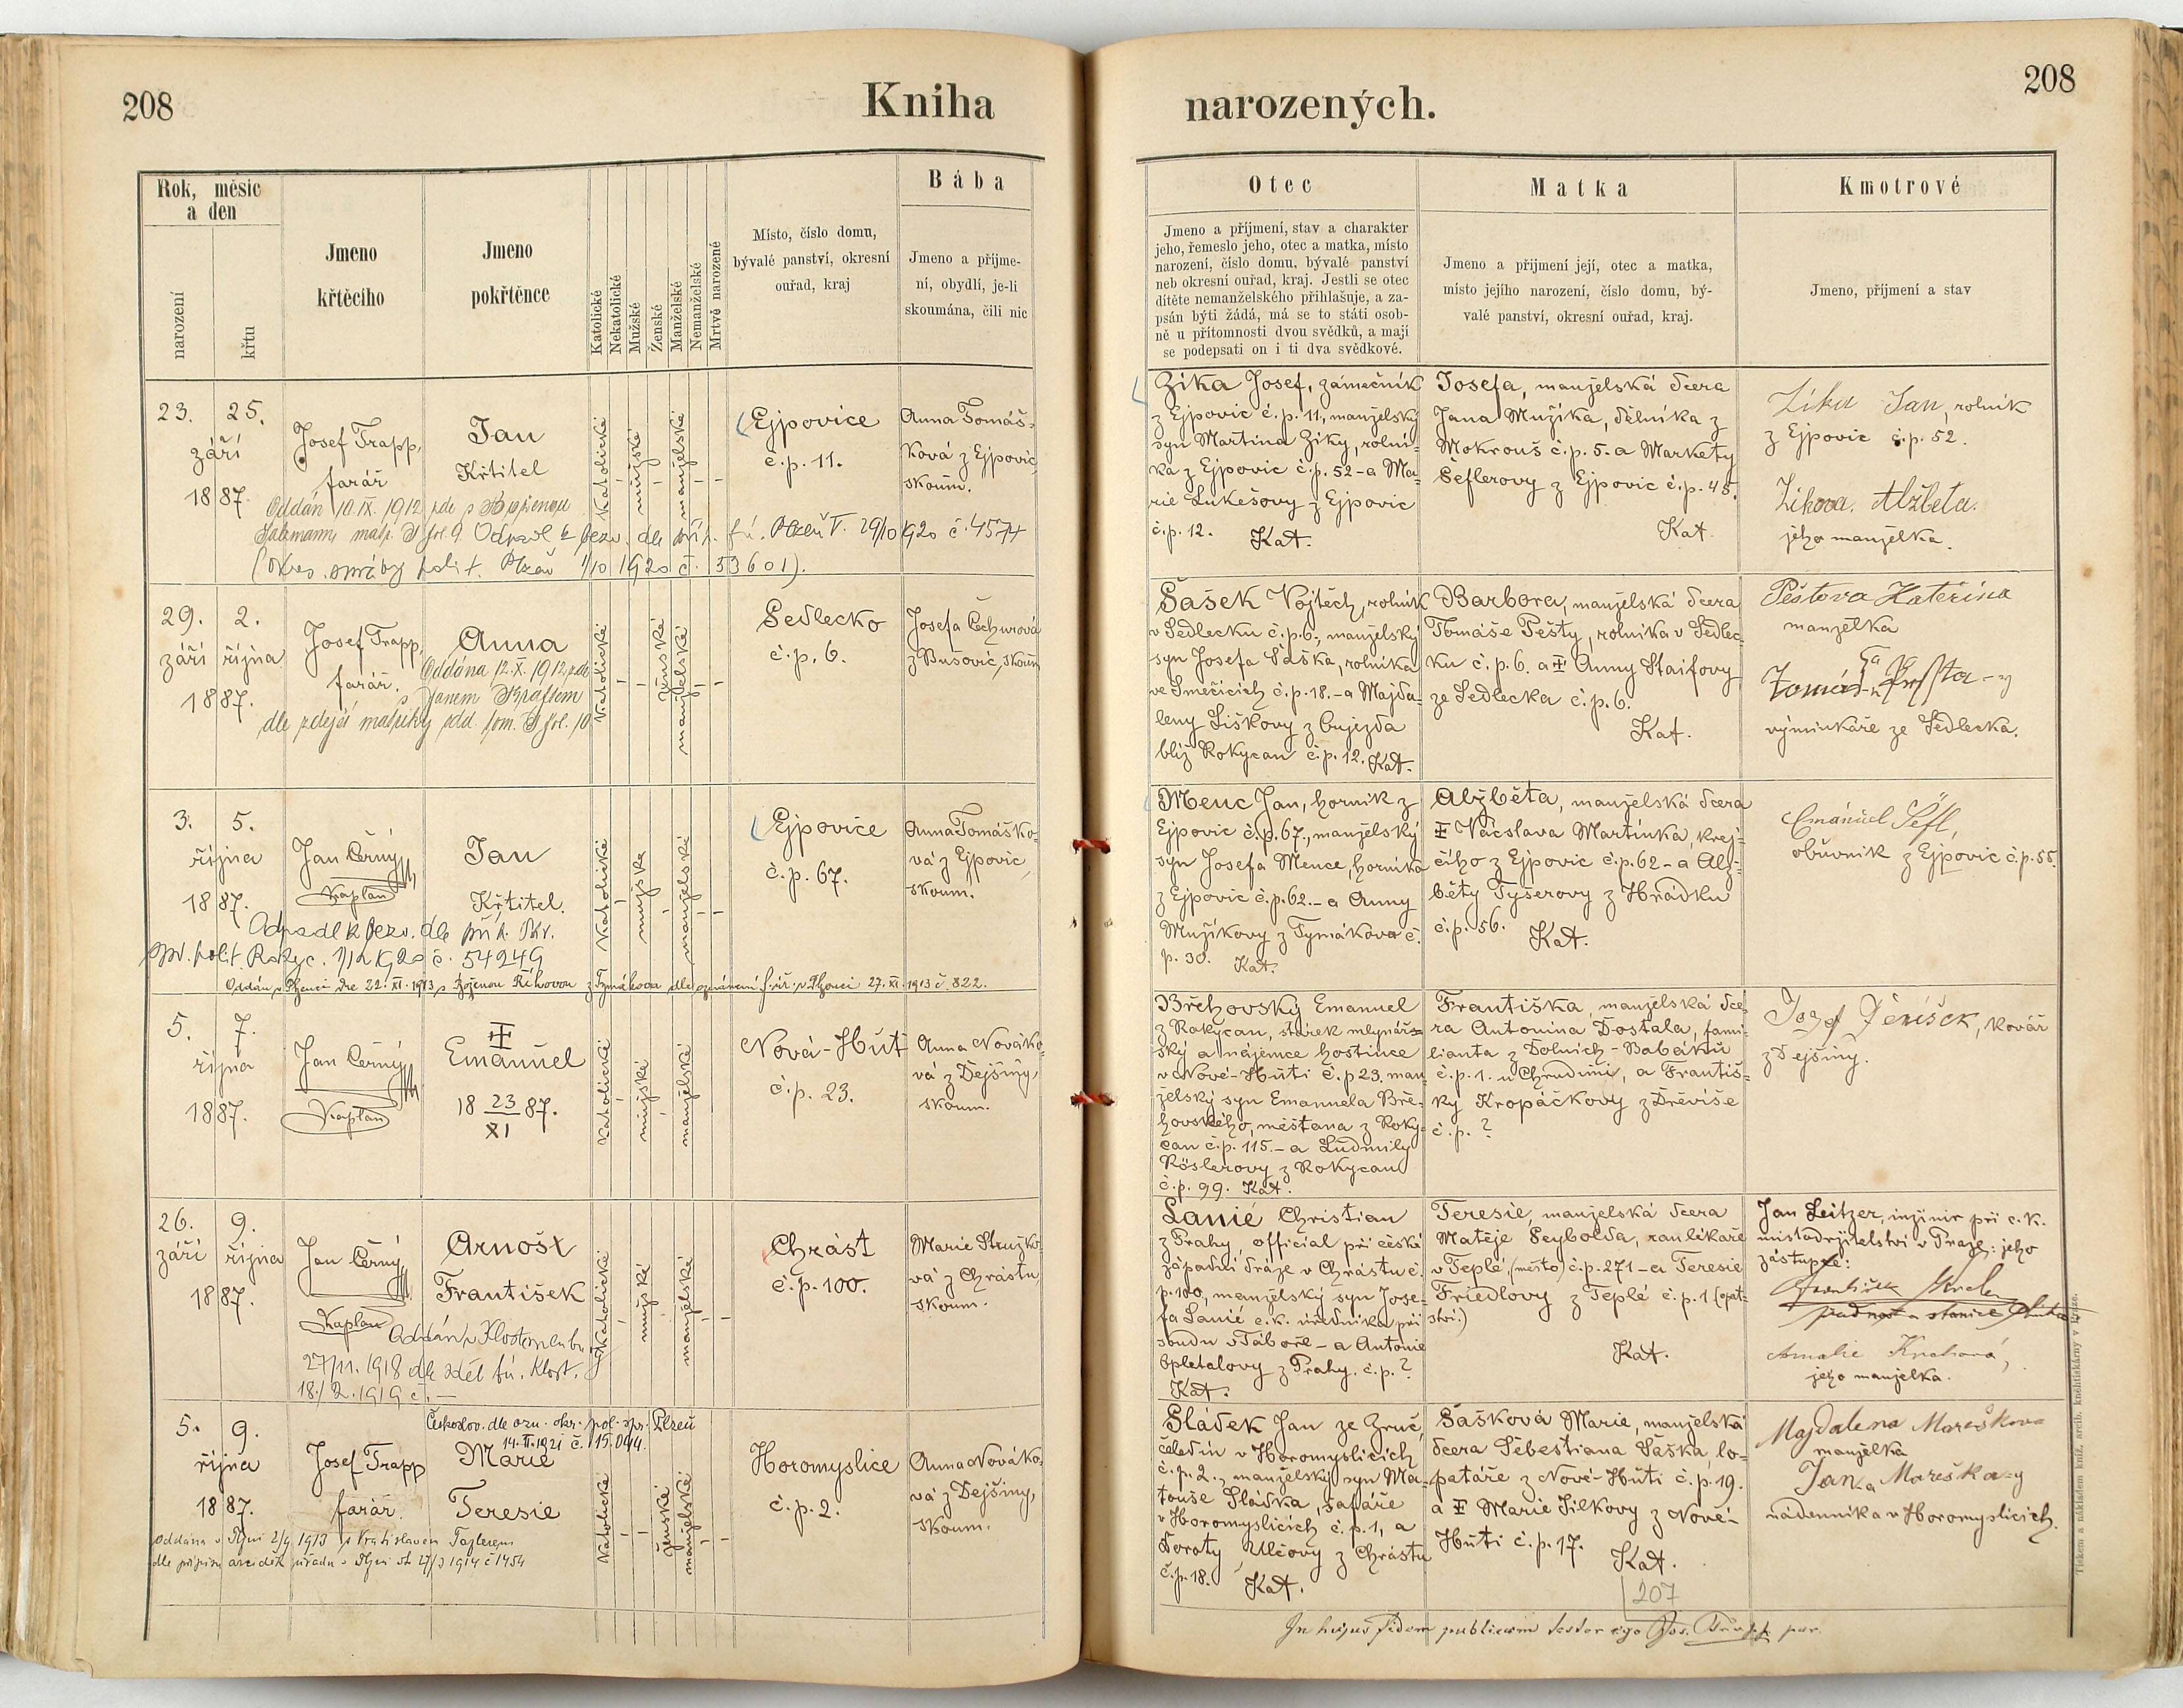 208
Kniha
narozených.
208
Rok, měsíc
a den
narození
křtu
Jmeno
křtěcího
Jmeno
pokřtěnce
Katolické
Nekatolické
Mužské
Ženské
Manželské
Nemanželské
Mrtvě narozené
Místo, číslo domu,
bývalé panství, okresní
ouřad, kraj
Bába
Jmeno a příjme-
ní, obydlí, je-li
skoumána, čili nic
Otec
Jmeno a příjmení, stav a charakter
jeho, řemeslo jeho, otec a matka, místo
narození, číslo domu, bývalé panství
neb okresní ouřad, kraj. Jestli se otec
dítěte nemanželského přihlašuje, a za-
psán býti žádá, má se to státi osob-
ně u přítomnosti dvou svědků, a mají
se podepsati on i ti dva svědkové.
Matka
Jmeno a přijmení její, otec a matka,
místo jejího narození, číslo domu, bý-
valé panství, okresní ouřad, kraj.
Kmotrové
Jmeno, příjmení a stav
23. 25.
září
1887.
Josef Trapp,
farář
Jan
Křtitel
Katolické
mužské
manželské
Ejpovice
č. p. 11.
Anna Tomáš-
ková z Ejpovic
skoum.
Oddán 10. IX. 1912 zde s
matr. fol. 9. Odpadl k bezv. dle příp. Plzeň 29/10 1920 č. 4574
(Okres. správy polit. Plzeň 1/10 1920 č. 53601).
Zíka Josef, zámečník
z Ejpovic č. p. 11., manželský
syn Martina Zíky, rolní-
ka z Ejpovic č. p. 52 - a Ma-
rie Lukešovy z Ejpovic
č. p. 12. Kat.
Josefa, manželská dcera
Jana Mužíka, dělníka z
Mokrouš č. p. 5. a Markety
Šeflerovy z Ejpovic č. p. 45.
Kat.
Zíka Jan, rolník
z Ejpovic č. p. 52.
Zíkova Alžbeta.
jeho manželka.
29. 2.
září října
1887.
Josef Trapp,
farář.
Anna
Oddána 12. X. 1912 zde
s Janem
dle zdejší matriky odd. tom. fol. 10
Katolické
ženské
manželské
Sedlecko
č. p. 6.
Josefa Čechurová
z Bušovic, skoum
Šašek Vojtěch, rolník
v Sedlecku č. p. 6., manželský
syn Josefa Šaška, rolníka
ve Smečicích č. p. 18. - a Majda-
leny Liškovy z Oujezda
blíž Rokycan č. p. 12. Kat.
Barbora, manželská dcera
Tomáše Pešty, rolníka v Sedlec-
ku č. p. 6. a ‡ Anny Staifovy
ze Sedlecka č. p. 6.
Kat.
Peštova Kateřina
manželka
výminkáře ze Sedlecka.
3. 5.
října
1887.
Jan Černý
Kaplan
Jan
Křtitel.
Katolické
mužské
manželské
Ejpovice
č. p. 67.
Anna Tomáško-
vá z Ejpovic,
skoum.
Odpadl k bezv. dle příp. okr.
spr. polit. Rokyc. 1/12 1920 č. 54249
Oddán v Plzenci dne 22. XI. 1913 s Boženou Říhovou z Tymákova dle oznámení f. úř. v Plzenci 27. XI. 1913 č. 822.
Menc Jan, horník z
Ejpovic č. p. 67., manželský
syn Josefa Mence, horníka
z Ejpovic č. p. 62. - a Anny
Mužíkovy z Tymákova č.
p. 30. Kat.
Alžběta, manželská dcera
‡ Václava Martínka, krej-
čího z Ejpovic č. p. 62 - a Alž-
běty Tyšerovy z Hrádku
č. p. 56. Kat.
Emánuel Šefl,
obůvník z Ejpovic č. p. 55.
5. 7.
října
1887.
Jan Černý
Kaplan
‡
Emanuel
18 23/XI 87.
Katolické
mužské
manželské
Nová-Huť
č. p. 23.
Anna Nováko-
vá z Dejšiny
skoum.
Břehovský Emanuel
z Rokycan, stárek mlynář-
ský a nájemce hostince
v Nové-Huti č. p. 23. man-
želský syn Emanuela Bře-
hovského, měšťana z Roky-
can č. p. 115. - a Ludmily
Röslerovy z Rokycan
č. p. 99. Kat.
Františka, manželská dce-
ra Antonína Dostala, fami-
lianta z Dolních-Babáků
č. p. 1. u Chrudimi, a Františ-
ky Kropáčkovy z Dřevíše
č. p. ?
Josef Jeníšek, kovář
z Dejšiny.
26. 9.
září října
1887.
Jan Černý
Kaplan
Arnošt
František
Oddán v
27/11. 1918 dle sděl fú. Klost.
18./2. 1919 č. —
Katolické
mužské
manželské
Chrást
č. p. 100.
Marie Stružko-
vá z Chrástu
skoum.
Lanié Christian
z Prahy, officiál při české
západní dráze v Chrástu č.
p. 100, manželský syn Jose-
fa Lanié c. k. úředníka při
soudu v Táboře - a Antonie
Opletalovy z Prahy. č. p. ?
Kat.
Teresie, manželská dcera
Matěje Seybolda, ranlékaře
v Teplé, (město) č. p. 271 - a Teresie
Friedlovy z Teplé č. p. 1 (opat-
ství.)
Kat.
Jan Leitzer, inžinír při c. k.
místodržitelství v Praze: jeho
zástupce:
František
Amalie
jeho manželka.
5. 9.
října
1887.
Josef Trapp
farář.
Českoslov. dle ozn. okr. pol. spr. Plzeň
14. II. 1921 č.
Marie
Teresie
Katolické
ženské
manželské
Horomyslice
č. p. 2.
Anna Nováko-
vá z Dejšiny,
skoum.
Oddána v Plzni 2/9 1913 s Vratislavem
dle přípisu arciděk. úřadu v Plzni 1914 č 1454
Sládek Jan ze Zruč,
čeledín v Horomyslicích
č. p. 2., manželský syn Ma-
touše Sládka, šafáře
v Horomyslicích č. p. 1, a
Doroty Ulčovy z Chrástu
č. p. 18. Kat.
Šašková Marie, manželská
dcera Šebestiana Šaška, lo-
patáře z Nové-Huti č. p. 19.
a ‡ Marie Silkovy z Nové-
Huti č. p. 17.
Kat.
207
Majdalena Mareškova
manželka
Jana Mareška-y
nádenníka v Horomyslicích.
In hujus fidem publicam testor ego Jos. Trapp par.